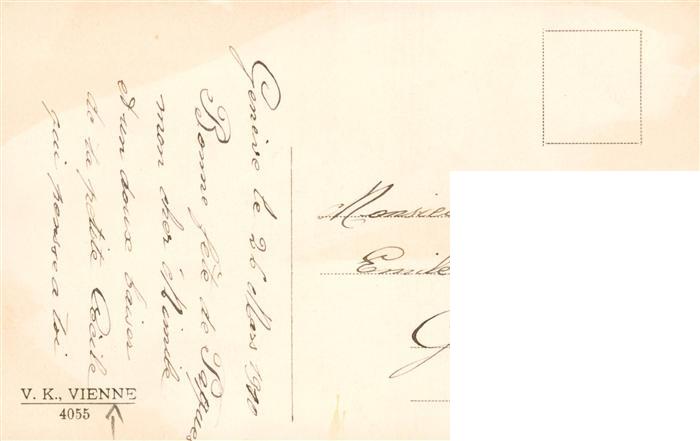 Genève le 26 Mars 1910
Bonne fête de Pâques
mon cher Emile
et un doux baiser
de la petite Cécile
qui pense a toi
Monsieu
Emile
V. K., VIENNE
4055